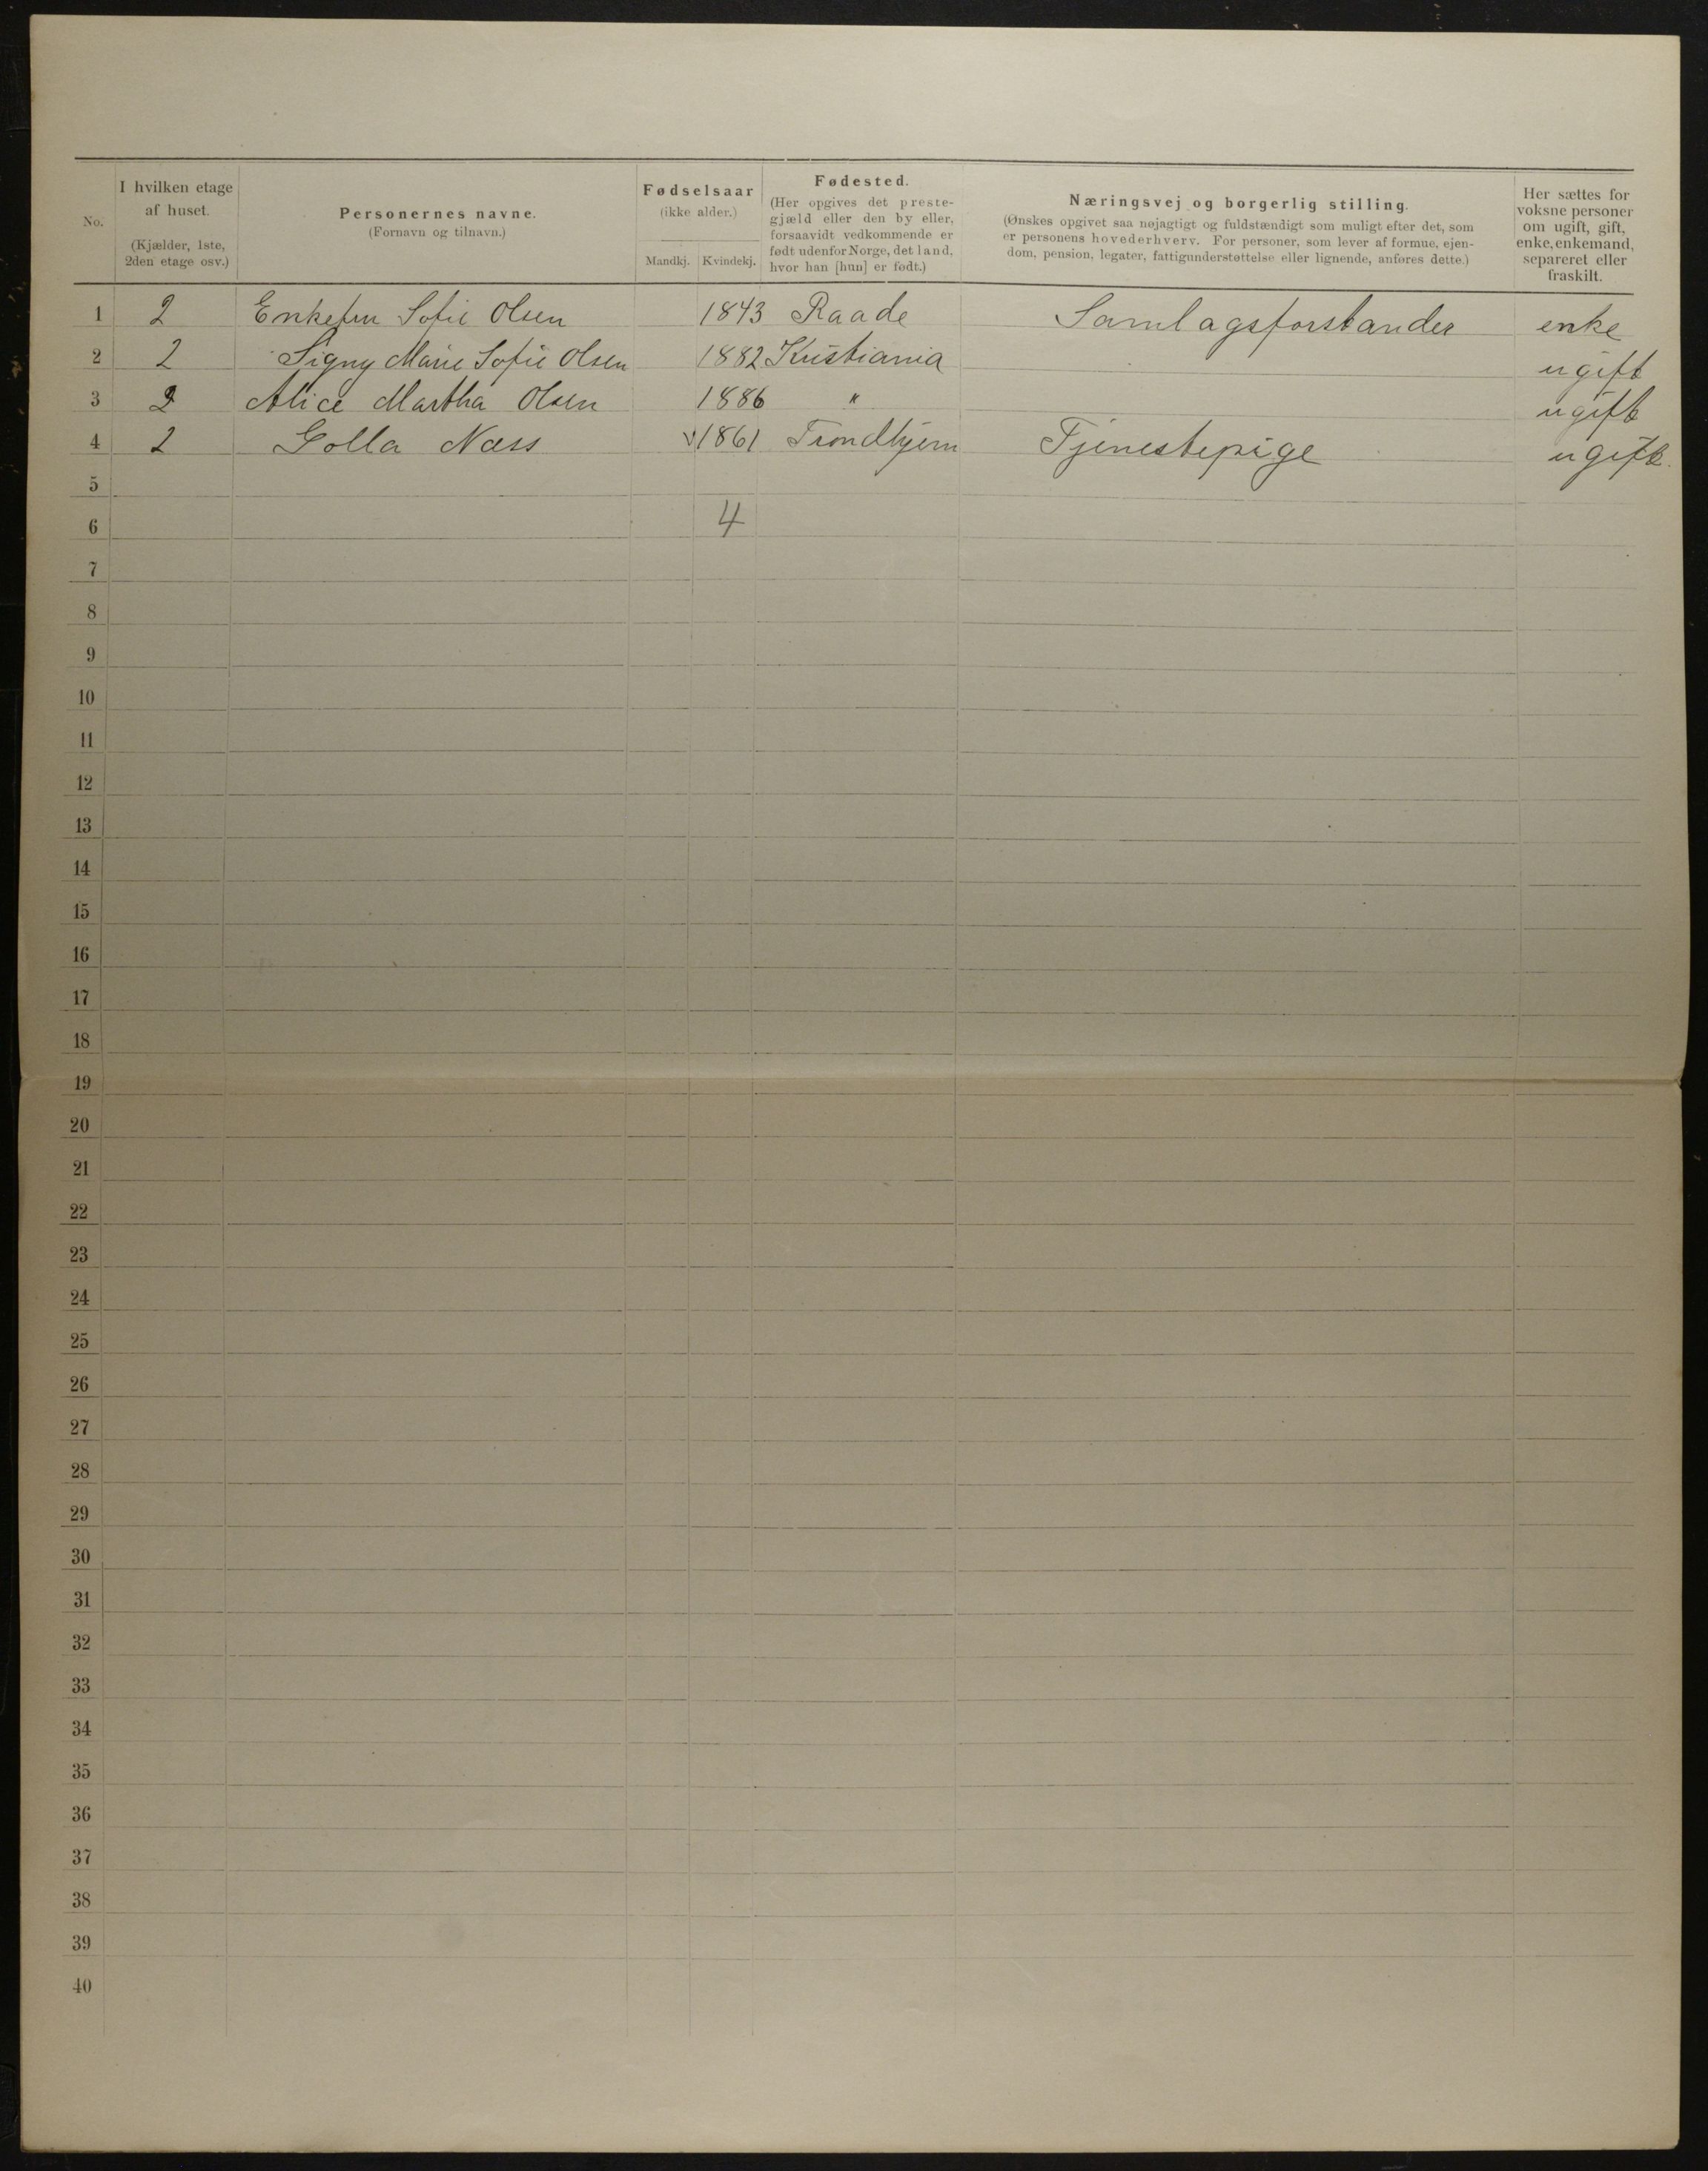 No.
I hvilken etage
af huset.
(Kjælder, 1ste,
2den etage osv.)
Personernes navne.
(Fornavn og tilnavn.)
Fødselsaar
(ikke alder.)
Mandkj. Kvindekj.
Fødested.
(Her opgives det preste-
gjæld eller den by eller,
forsaavidt vedkommende er
født udenfor Norge, det land,
hvor han [hun] er født.)
Næringsvej og borgerlig stilling.
(Ønskes opgivet saa nøjagtigt og fuldstændigt som muligt efter det, som
er personens hovederhverv. For personer, som lever af formue, ejen-
dom, pension, legater, fattigunderstøttelse eller lignende, anføres dette.)
Her sættes for
voksne personer
om ugift, gift,
enke, enkemand,
separeret eller
fraskilt.
1 2 Enkefru Sofie Olsen 1843 Raade Samlagsforstander enke
2 2 Signy Marie Sofie Olsen 1882 Kristiania ugift
3 2 Alice Martha Olsen 1886 " ugift
4 2 Golla Næss 1861 Trondhjem Tjenestepige ugift.
5
6 4
7
8
9
10
11
12
13
14
15
16
17
18
19
20
21
22
23
24
25
26
27
28
29
30
31
32
33
34
35
36
37
38
39
40